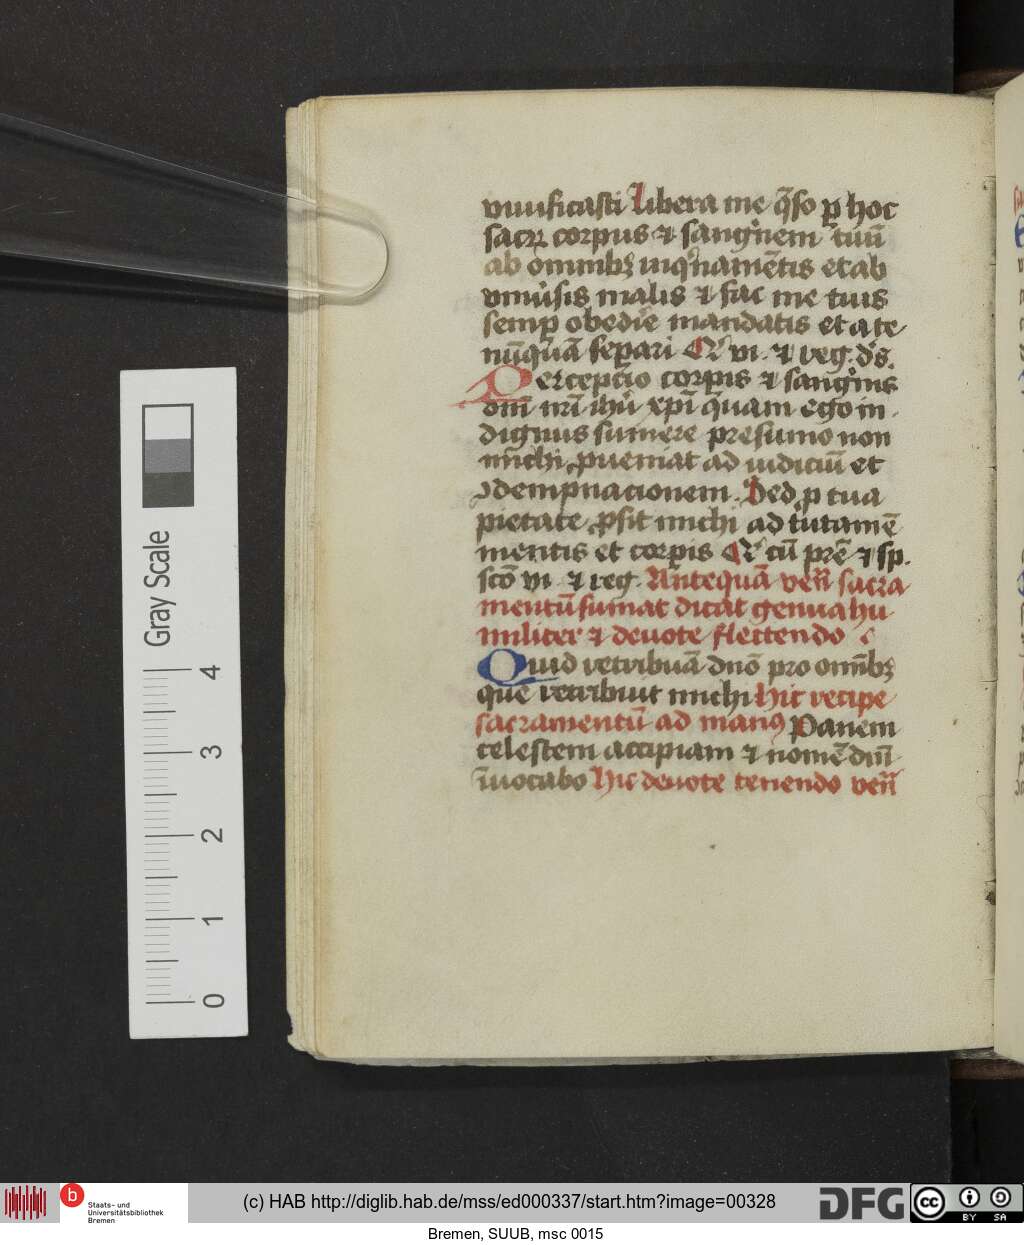 viuificasti Libera me q̄so p̱ hoc
sacrȝ corpus ⁊ sangͥnem tuū
ab om̄nibꝫ inqͥnamētis et ab
vniuͥsis malis ⁊ fac me tuis
semp̱ obedīe mandatis et a te
nūqͣuā sep̱ari Qͥ vi. ⁊ reg. ds̄.
Perceptio corp̱is ⁊ sangͥnis
dn̄i nr̄i ihū xp̄i qͣuam ego in
dignus sumere presumo non
michi ꝓueniat ad iudiciū et
ↄdempnacionem. Sed p̱ tua
pietate ꝓsit michi ad tutamē
mentis et corp̱is Qͥ cū pr̄e ⁊ sp.
scō vi ⁊ reg. Anteqͣuā ven̄ sacra
mentū sumat dicat genua hu
militer ⁊ deuote flectendo
Quid retribuā dn̄o pro om̄ibꝫ
que retribuit michi Hic recipe
sacramentū ad manꝰ Panem
celestem accipiam ⁊ nomē dn̄i
īuocabo Hic deuote tenendo ven̄
Gray Scale
4
3
2
1
0
b
Staats- und
Universitätsbibliothek
Bremen
(c) HAB http://diglib.hab.de/mss/ed000337/start.htm?image=00328
DFG
cc
BY SA
Bremen, SUUB, msc 0015